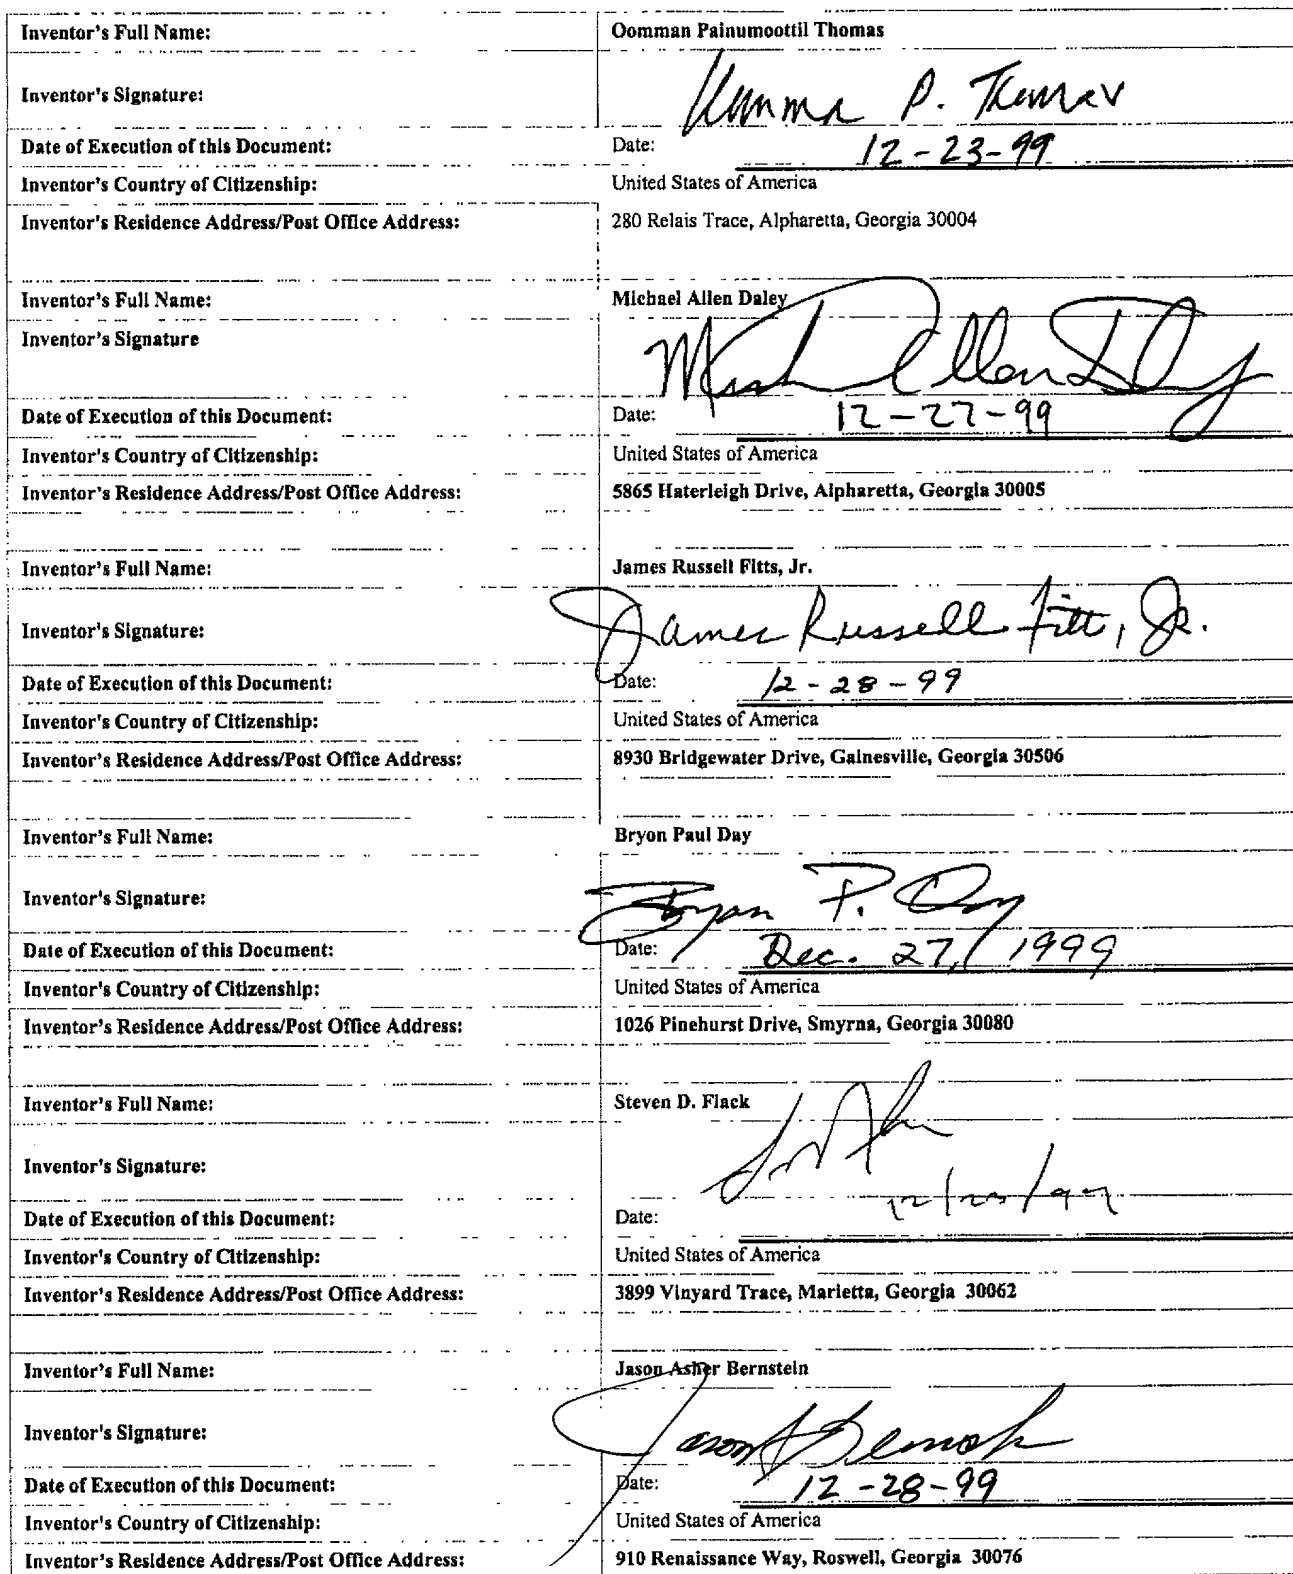 Inventor's Full Name: Oomman Painumoottil Thomas
Inventor's Signature: P. Thomas
Date of Execution of this Document: Date: 12-23-99
Inventor's Country of Citizenship: United States of America
Inventor's Residence Address/Post Office Address: 280 Relais Trace, Alpharetta, Georgia 30004
Inventor's Full Name: Michael Allen Daley
Inventor's Signature Michael Allen Daley
Date of Execution of this Document: Date: 12-27-99
Inventor's Country of Citizenship: United States of America
Inventor's Residence Address/Post Office Address: 5865 Haterleigh Drive, Alpharetta, Georgia 30005
Inventor's Full Name: James Russell Fitts, Jr.
Inventor's Signature: James Russell Fitts, Jr.
Date of Execution of this Document: Date: 12-28-99
Inventor's Country of Citizenship: United States of America
Inventor's Residence Address/Post Office Address: 8930 Bridgewater Drive, Gainesville, Georgia 30506
Inventor's Full Name: Bryon Paul Day
Inventor's Signature: Bryon P. Day
Date of Execution of this Document: Date: Dec. 27, 1999
Inventor's Country of Citizenship: United States of America
Inventor's Residence Address/Post Office Address: 1026 Pinehurst Drive, Smyrna, Georgia 30080
Inventor's Full Name: Steven D. Flack
Inventor's Signature:
Date of Execution of this Document: Date: 12/23/99
Inventor's Country of Citizenship: United States of America
Inventor's Residence Address/Post Office Address: 3899 Vinyard Trace, Marietta, Georgia 30062
Inventor's Full Name: Jason Asher Bernstein
Inventor's Signature: Jason A Bernstein
Date of Execution of this Document: Date: 12-28-99
Inventor's Country of Citizenship: United States of America
Inventor's Residence Address/Post Office Address: 910 Renaissance Way, Roswell, Georgia 30076